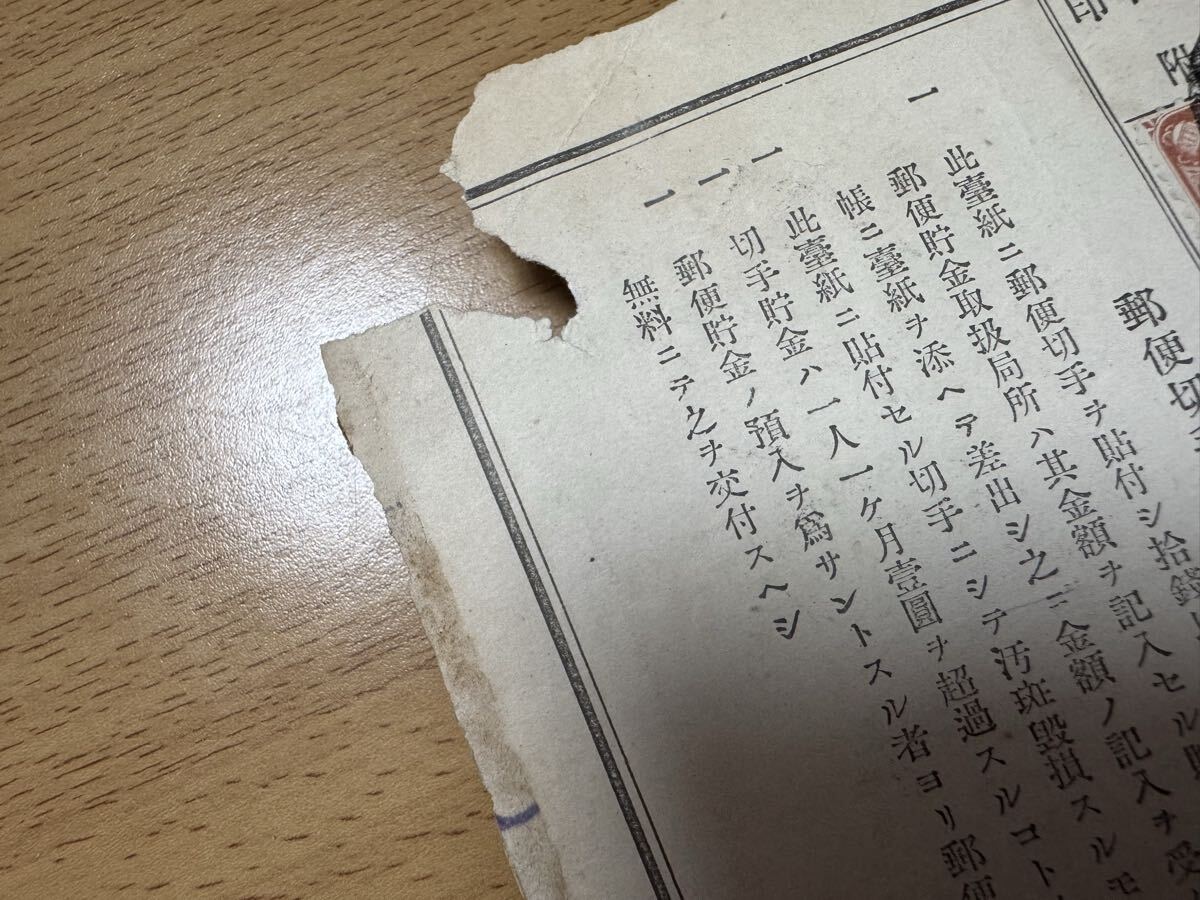 附
印
郵便切
一 此臺紙ニ郵便切手ヲ貼付シ拾錢
郵便貯金取扱局所ハ其金額ヲ記入セル
帳ニ臺紙ヲ添ヘテ差出シ之ニ金額ノ記入ヲ受
一 此臺紙ニ貼付セル切手ニシテ汚斑毀損スルモ
一 切手貯金ハ一人一ケ月壹圓ヲ超過スルコト
一 郵便貯金ノ預入ヲ爲サントスル者ヨリ郵便
無料ニテ之ヲ交付スヘシ